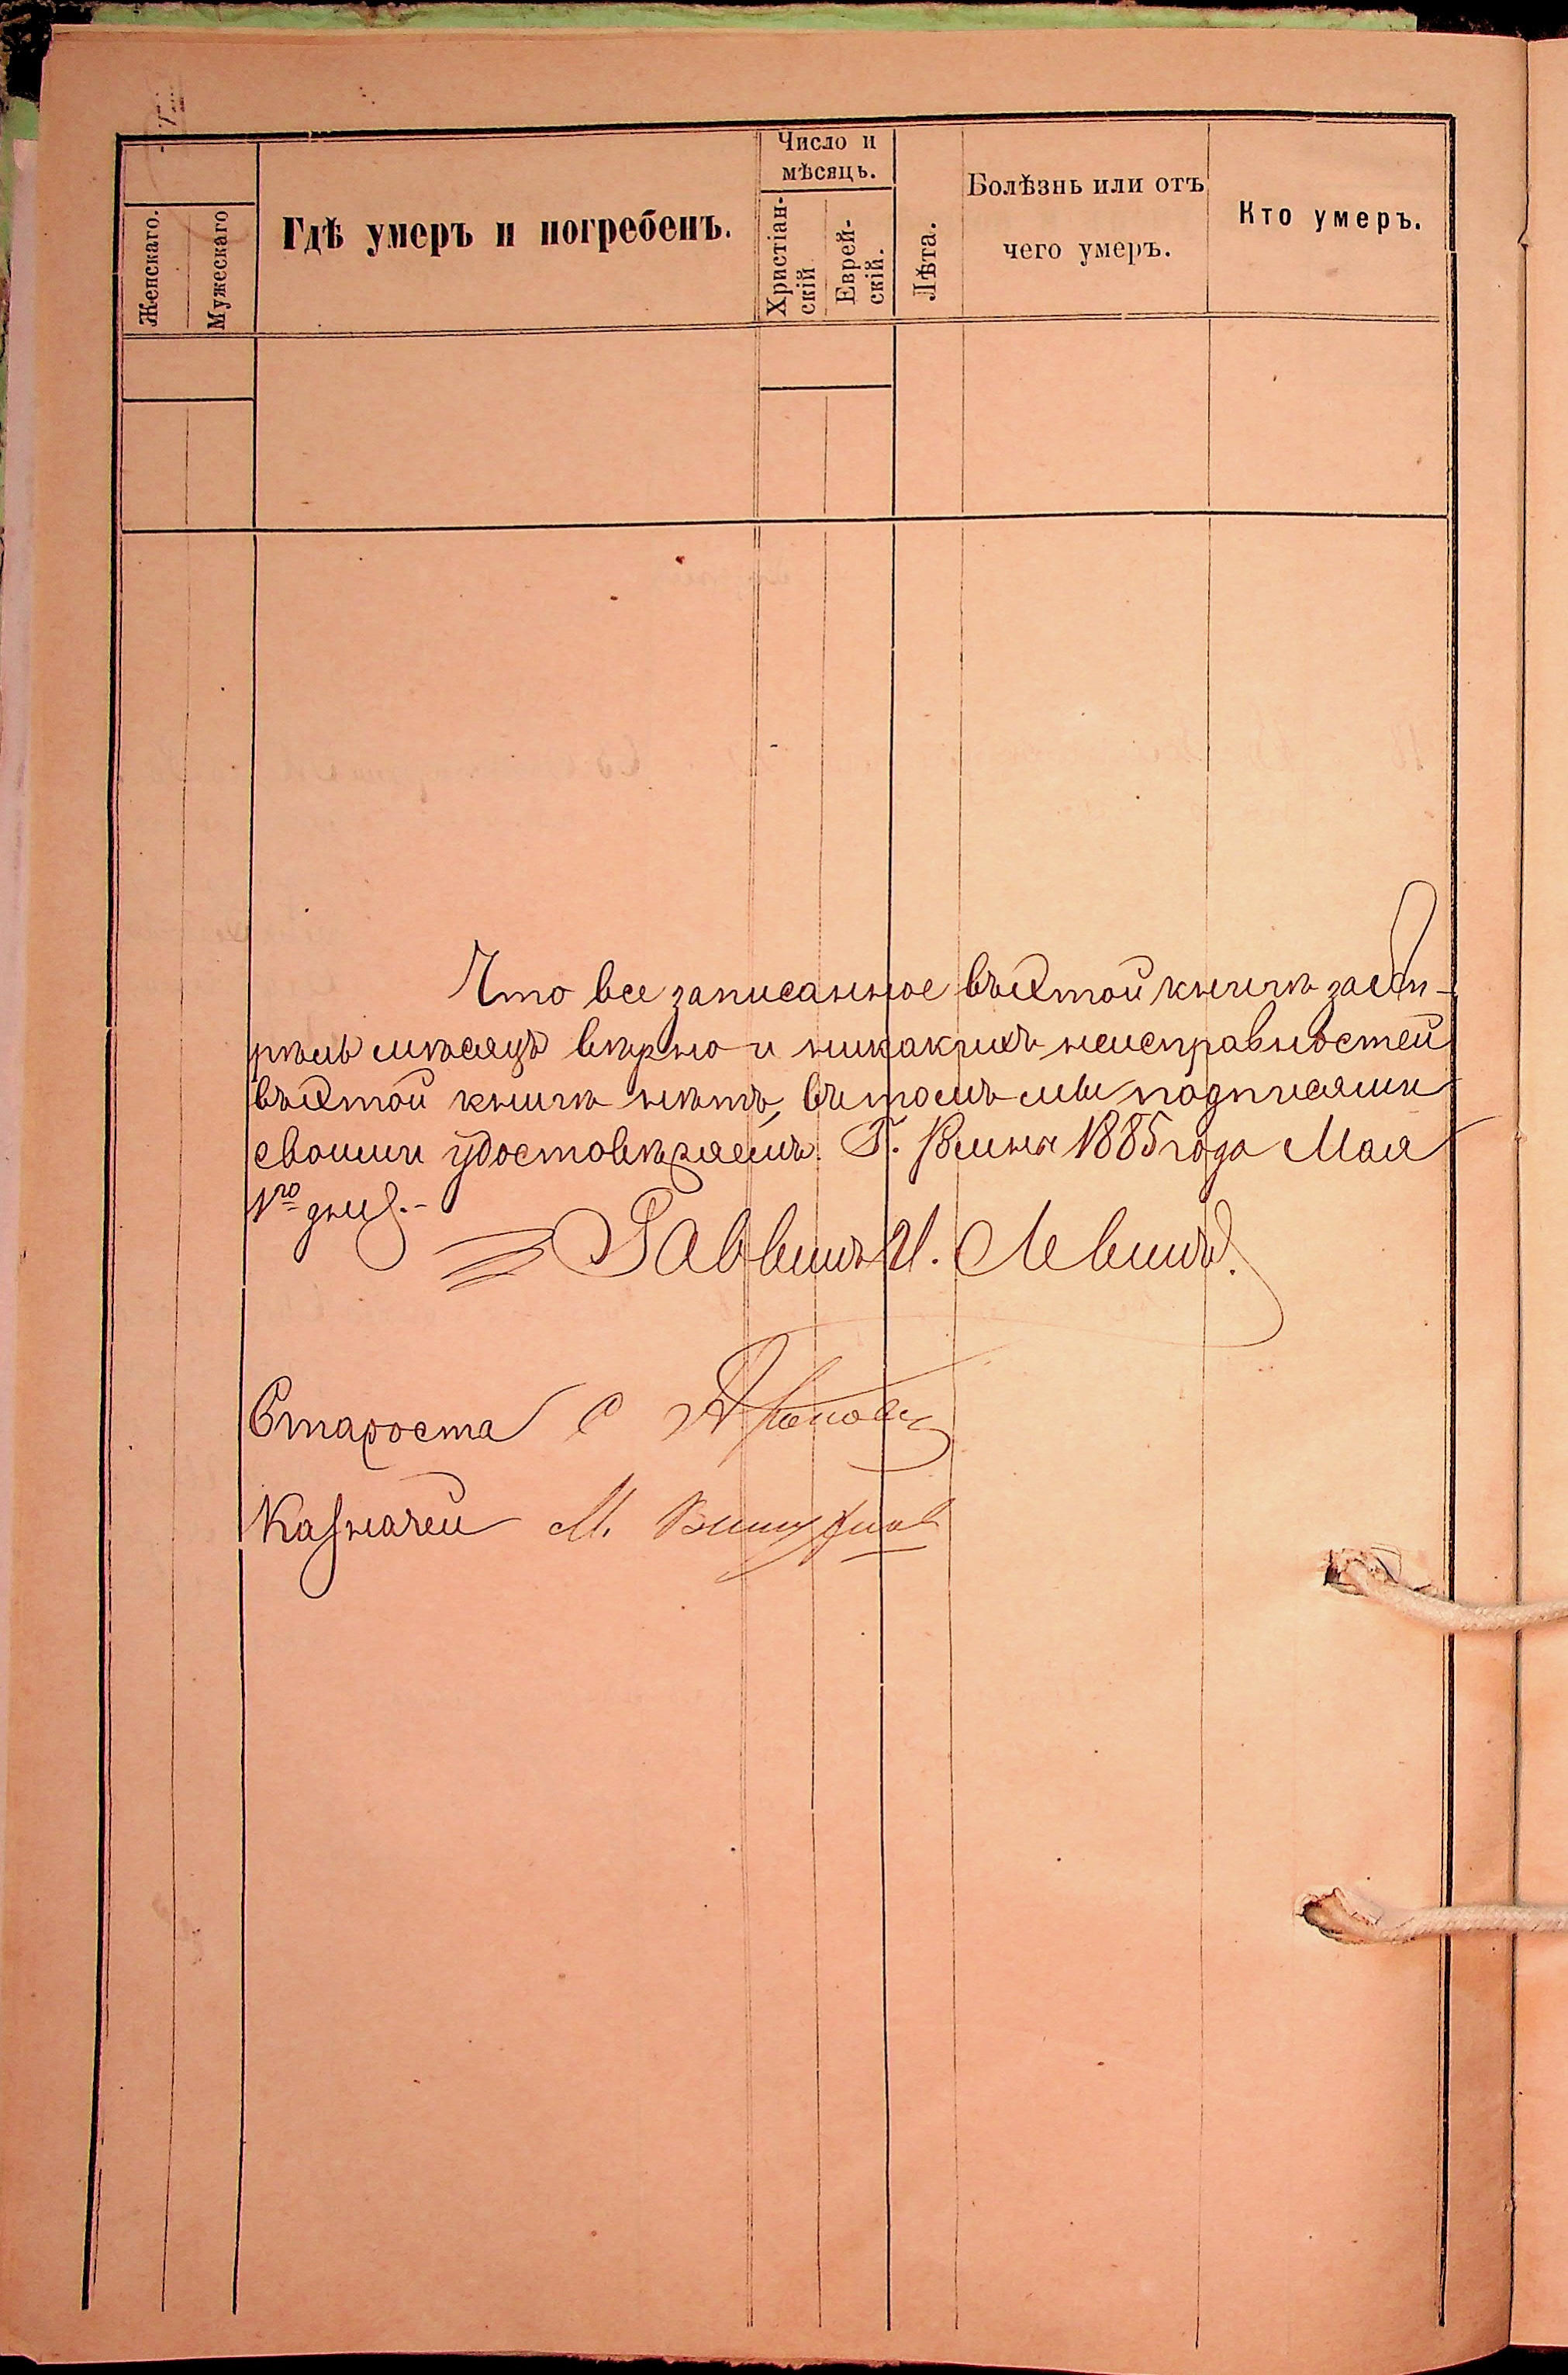 Женскаго.
Мужескаго
Гдѣ умеръ и погребенъ.
Число и
мѣсяцъ.
Христіан-
скій
Еврей-
скій.
Лѣта.
Болѣзнь или отъ
чего умеръ.
Кто умеръ.
Что все записанное въ этой книгѣ за Ап-
рѣль мѣсяцъ вѣрно и никакихъ неисправностей
въ этой книгѣ нѣтъ, въ томъ мы подписями
своими удостовѣряемъ. Г. 1885 года Мая
1го дня.-
Раввинъ И. Левинъ.
Староста С
Казначей М.